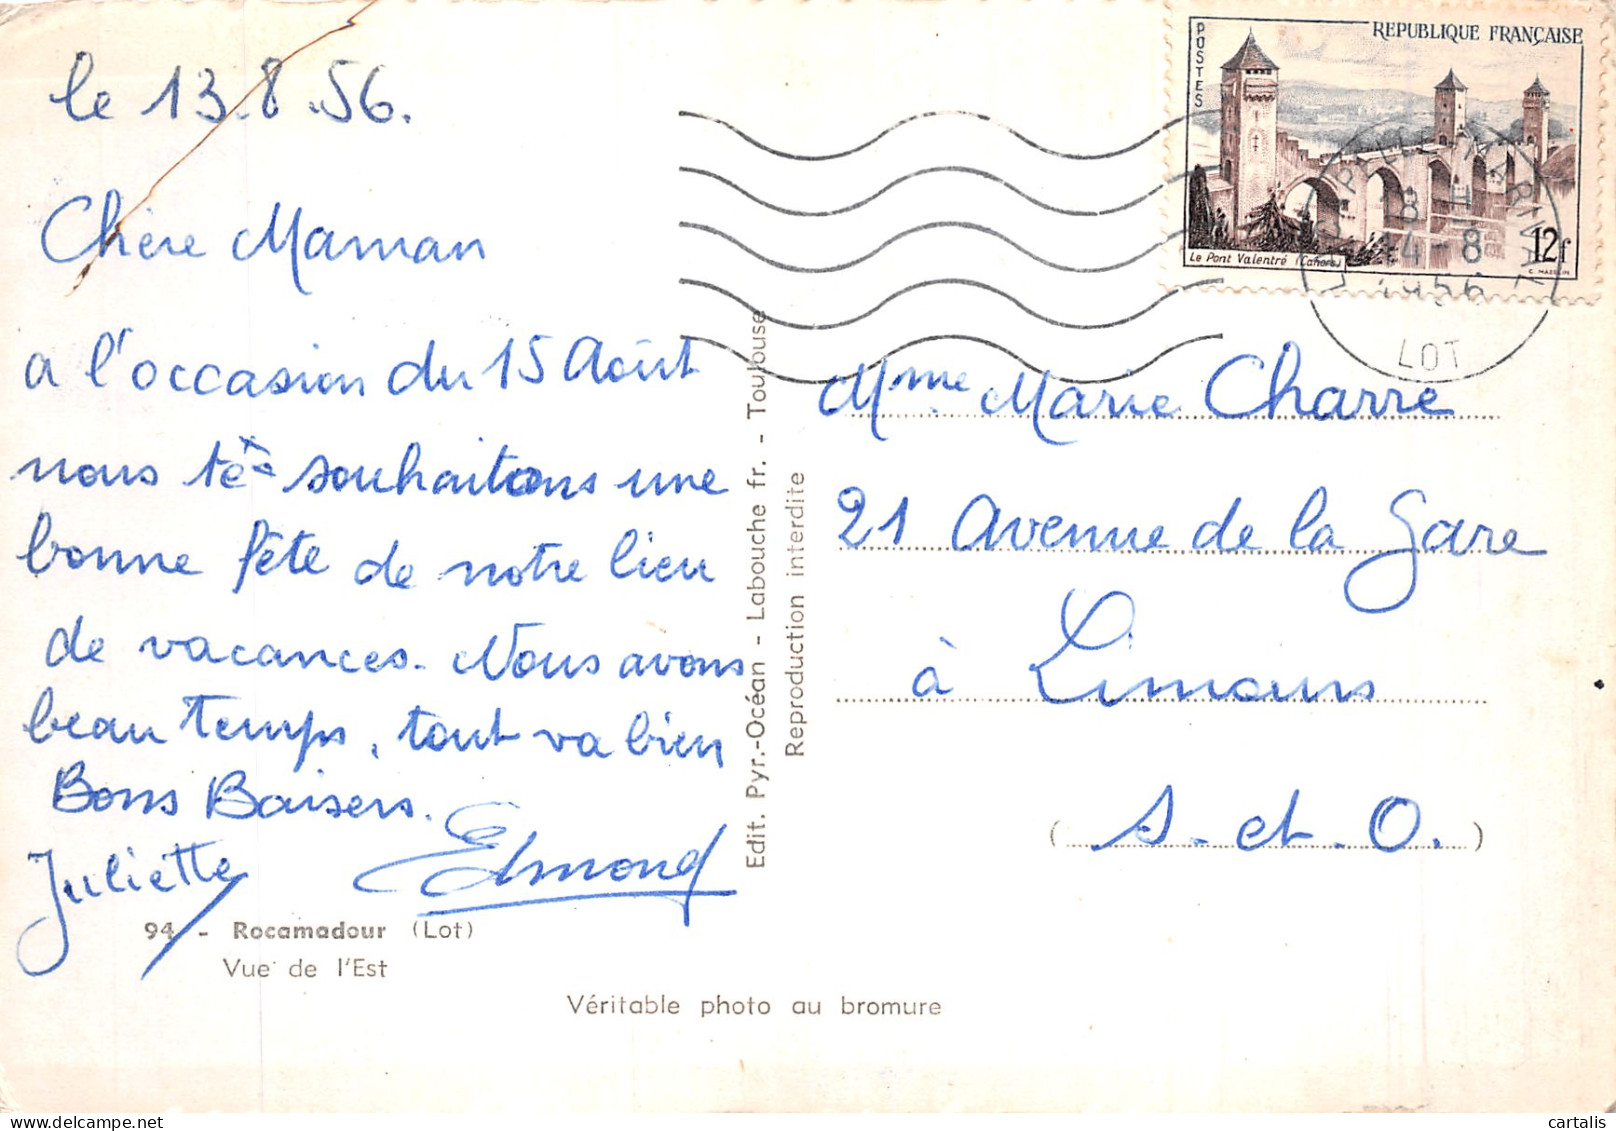 le 13.8.56.
Chère Maman
a l'occasion du 15 Août
nous te souhaitons une
bonne fête de notre lieu
de vacances. Nous avons
beau temps, tout va bien
Bons Baisers.
Juliette Edmond
94 - Rocamadour (Lot)
Vue de l'Est
Véritable photo au bromure
Edit. Pyr.-Océan - Labouche fr. - Toulouse
Reproduction interdite
POSTES
REPUBLIQUE FRANÇAISE
Le Pont Valentré (Cahors)
12f
18 H
14-8
1956
LOT
Mme Marie Charre
21 Avenue de la Gare
à Limours
(S.et.O.)
cartalis